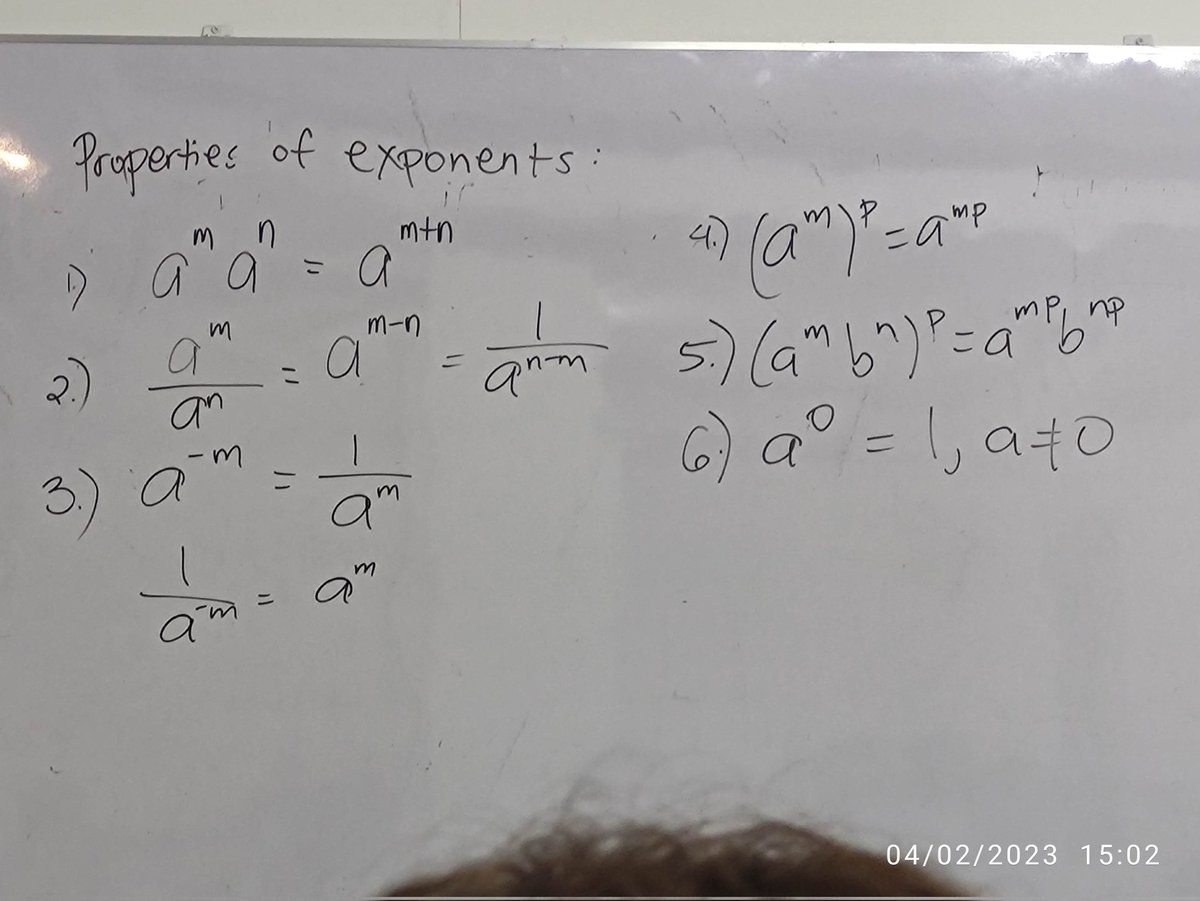 Properties of exponents:
1.) a^m a^n = a^{m+n}
2.) \frac{a^m}{a^n} = a^{m-n} = \frac{1}{a^{n-m}}
3.) a^{-m} = \frac{1}{a^m}
\frac{1}{a^{-m}} = a^m
4.) (a^m)^p = a^{mp}
5.) (a^m b^n)^p = a^{mp} b^{np}
6.) a^0 = 1, a ≠ 0
04/02/2023 15:02